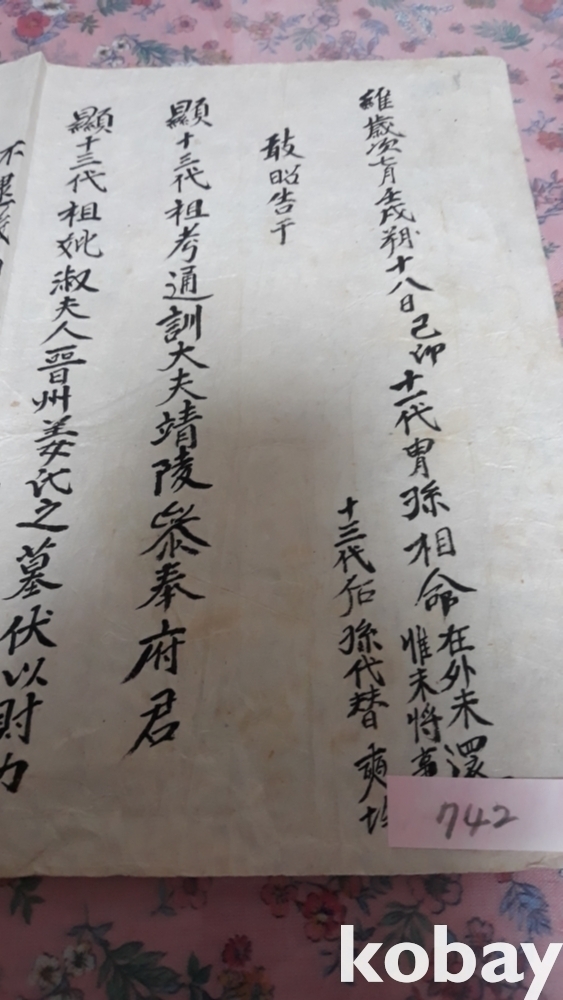 維歲次七月壬戌朔十八日己卯十一代胄孫相命在外未還
惟未將事
十三代后孫代替奭
敢昭告于
顯十三代祖考通訓大夫靖陵叅奉府君
顯十三代祖妣淑夫人晉州姜氏之墓伏以財力
不
742
kobay